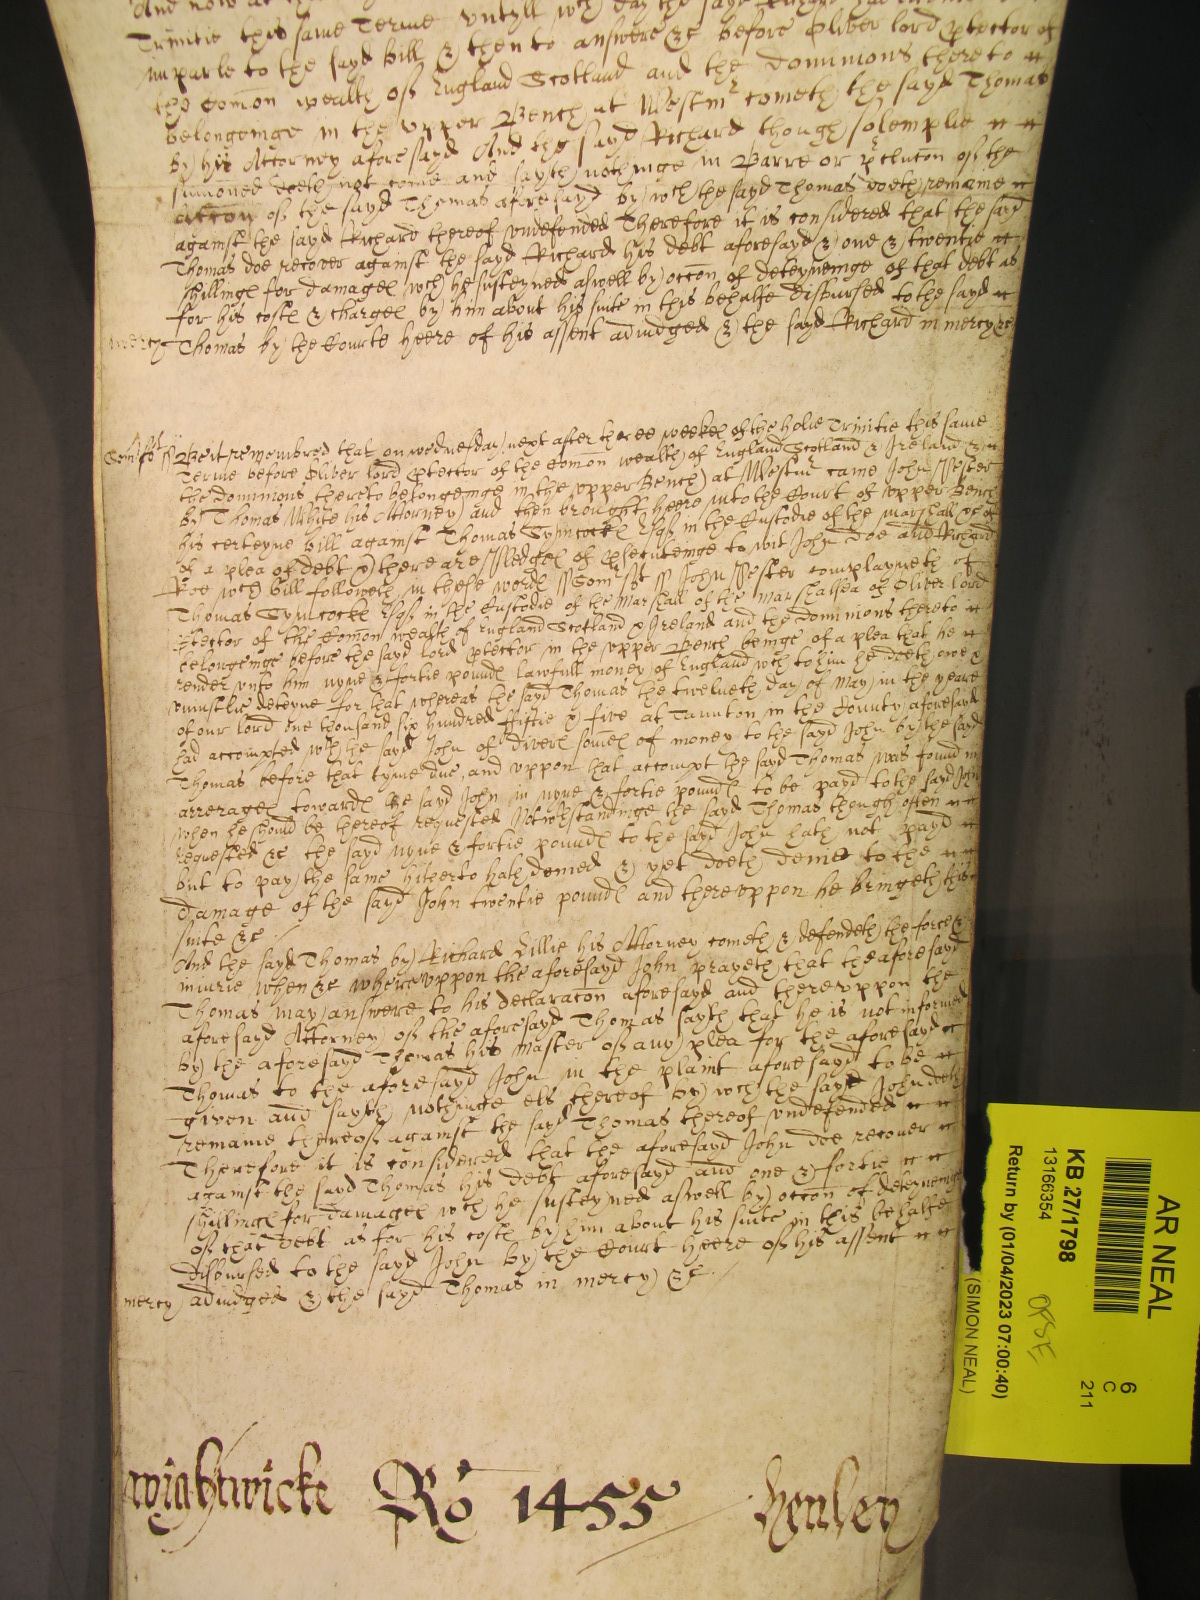 And now at
Trinitie this same Terme untyll wch day the sayd Richard
imparle to the sayd Bill & then to answere &c before Oliver lord Protector of
the Comon wealth of England Scotland and the dominions thereto
belongeinge in the upper Bench at Westmr cometh the sayd Thomas
by his Attorney aforesayd And the sayd Richard though solemplie
sumoned doeth not come and sayth nothinge in Barre or pclucon of the
accon of the sayd Thomas aforesayd by wch the sayd Thomas doeth remaine
against the sayd Richard thereof undefended Therefore it is considered that the sayd
Thomas doe recover against the sayd Richard his debt aforesayd & one & twentie
shillings for damages wch he susteyned aswell by occon of deteyneinge of that debt as
for his costs & charges by him about his suite in this behalfe disbursed to the sayd
mercy Thomas by the Courte heere of his assent adiudged & the sayd Richard in mercy &c
Somst ss Be it remembred that on wednesday next after three weekes of the holie Trinitie this same
Terme before Oliver lord Protector of the Comon wealth of England Scotland & Ireland &
the dominions thereto belongeinge in the upper Bench at Westmr came John
by Thomas White his Attorney and then brought heere into the Court of upper Bench
his certeyne bill against Thomas Symcocks Esqr in the Custodie of the marshall &c of
of a plea of debt & there are pledges of psecuteinge to wit John Doe and Richard
Roe wch bill followeth in these words ss Somst ss John complayneth of
Thomas Symcocks Esqr in the Custodie of the Marshall of the Marshalsea of Oliver lord
Protector of the Comon wealth of England Scotland & Ireland and the dominions thereto
belongeinge before the sayd lord Protector in the upper Bench beinge of a plea that he
render unto him nyne & fortie pounds lawfull money of England wch to him he doeth owe &
uniustlie deteyne for that whereas the sayd Thomas the twelveth day of May in the yeare
of our lord one thousand six hundred fiftie & five at Taunton in the County aforesayd
had accompted wth the sayd John of divers somes of money to the sayd John by the sayd
Thomas before that tyme due and uppon that accompt the sayd Thomas was found in
arrerages towards the sayd John in nyne & fortie pounds to be payd to the sayd John
when he should be thereof requested Notwthstandinge the sayd Thomas though often
requested &c the sayd nyne & fortie pounds to the sayd John hath not payd
but to pay the same hitherto hath denied & yet doeth denie to the
damage of the sayd John twentie pounds and thereuppon he bringeth his
suite &c
And the sayd Thomas by Richard Lillie his Attorney cometh & defendeth the force &
iniurie when &c whereuppon the aforesayd John prayeth that the aforesayd
Thomas may answere to his declaracon aforesayd and thereuppon the
aforesayd Attorney of the aforesayd Thomas sayth that he is not informed
by the aforesayd Thomas his Master of any plea for the aforesayd
Thomas to the aforesayd John in the plaint aforesayd to be
given and sayth nothinge els thereof by wch the sayd John doth
remaine thereof against the sayd Thomas thereof undefended
Therefore it is considered that the aforesayd John doe recover
against the sayd Thomas his debt aforesayd and one & fortie
shillings for damages wch he susteyned aswell by occon of deteyneinge
of that debt as for his costs by him about his suite in this behalfe
disbursed to the sayd John by the Court heere of his assent
mercy adiudged & the sayd Thomas in mercy &c
Wightwicke Ro 1455 Henley
AR NEAL
6
C
211
KB 27/1798
13166354
Return by (01/04/2023 07:00:40)
(SIMON NEAL)